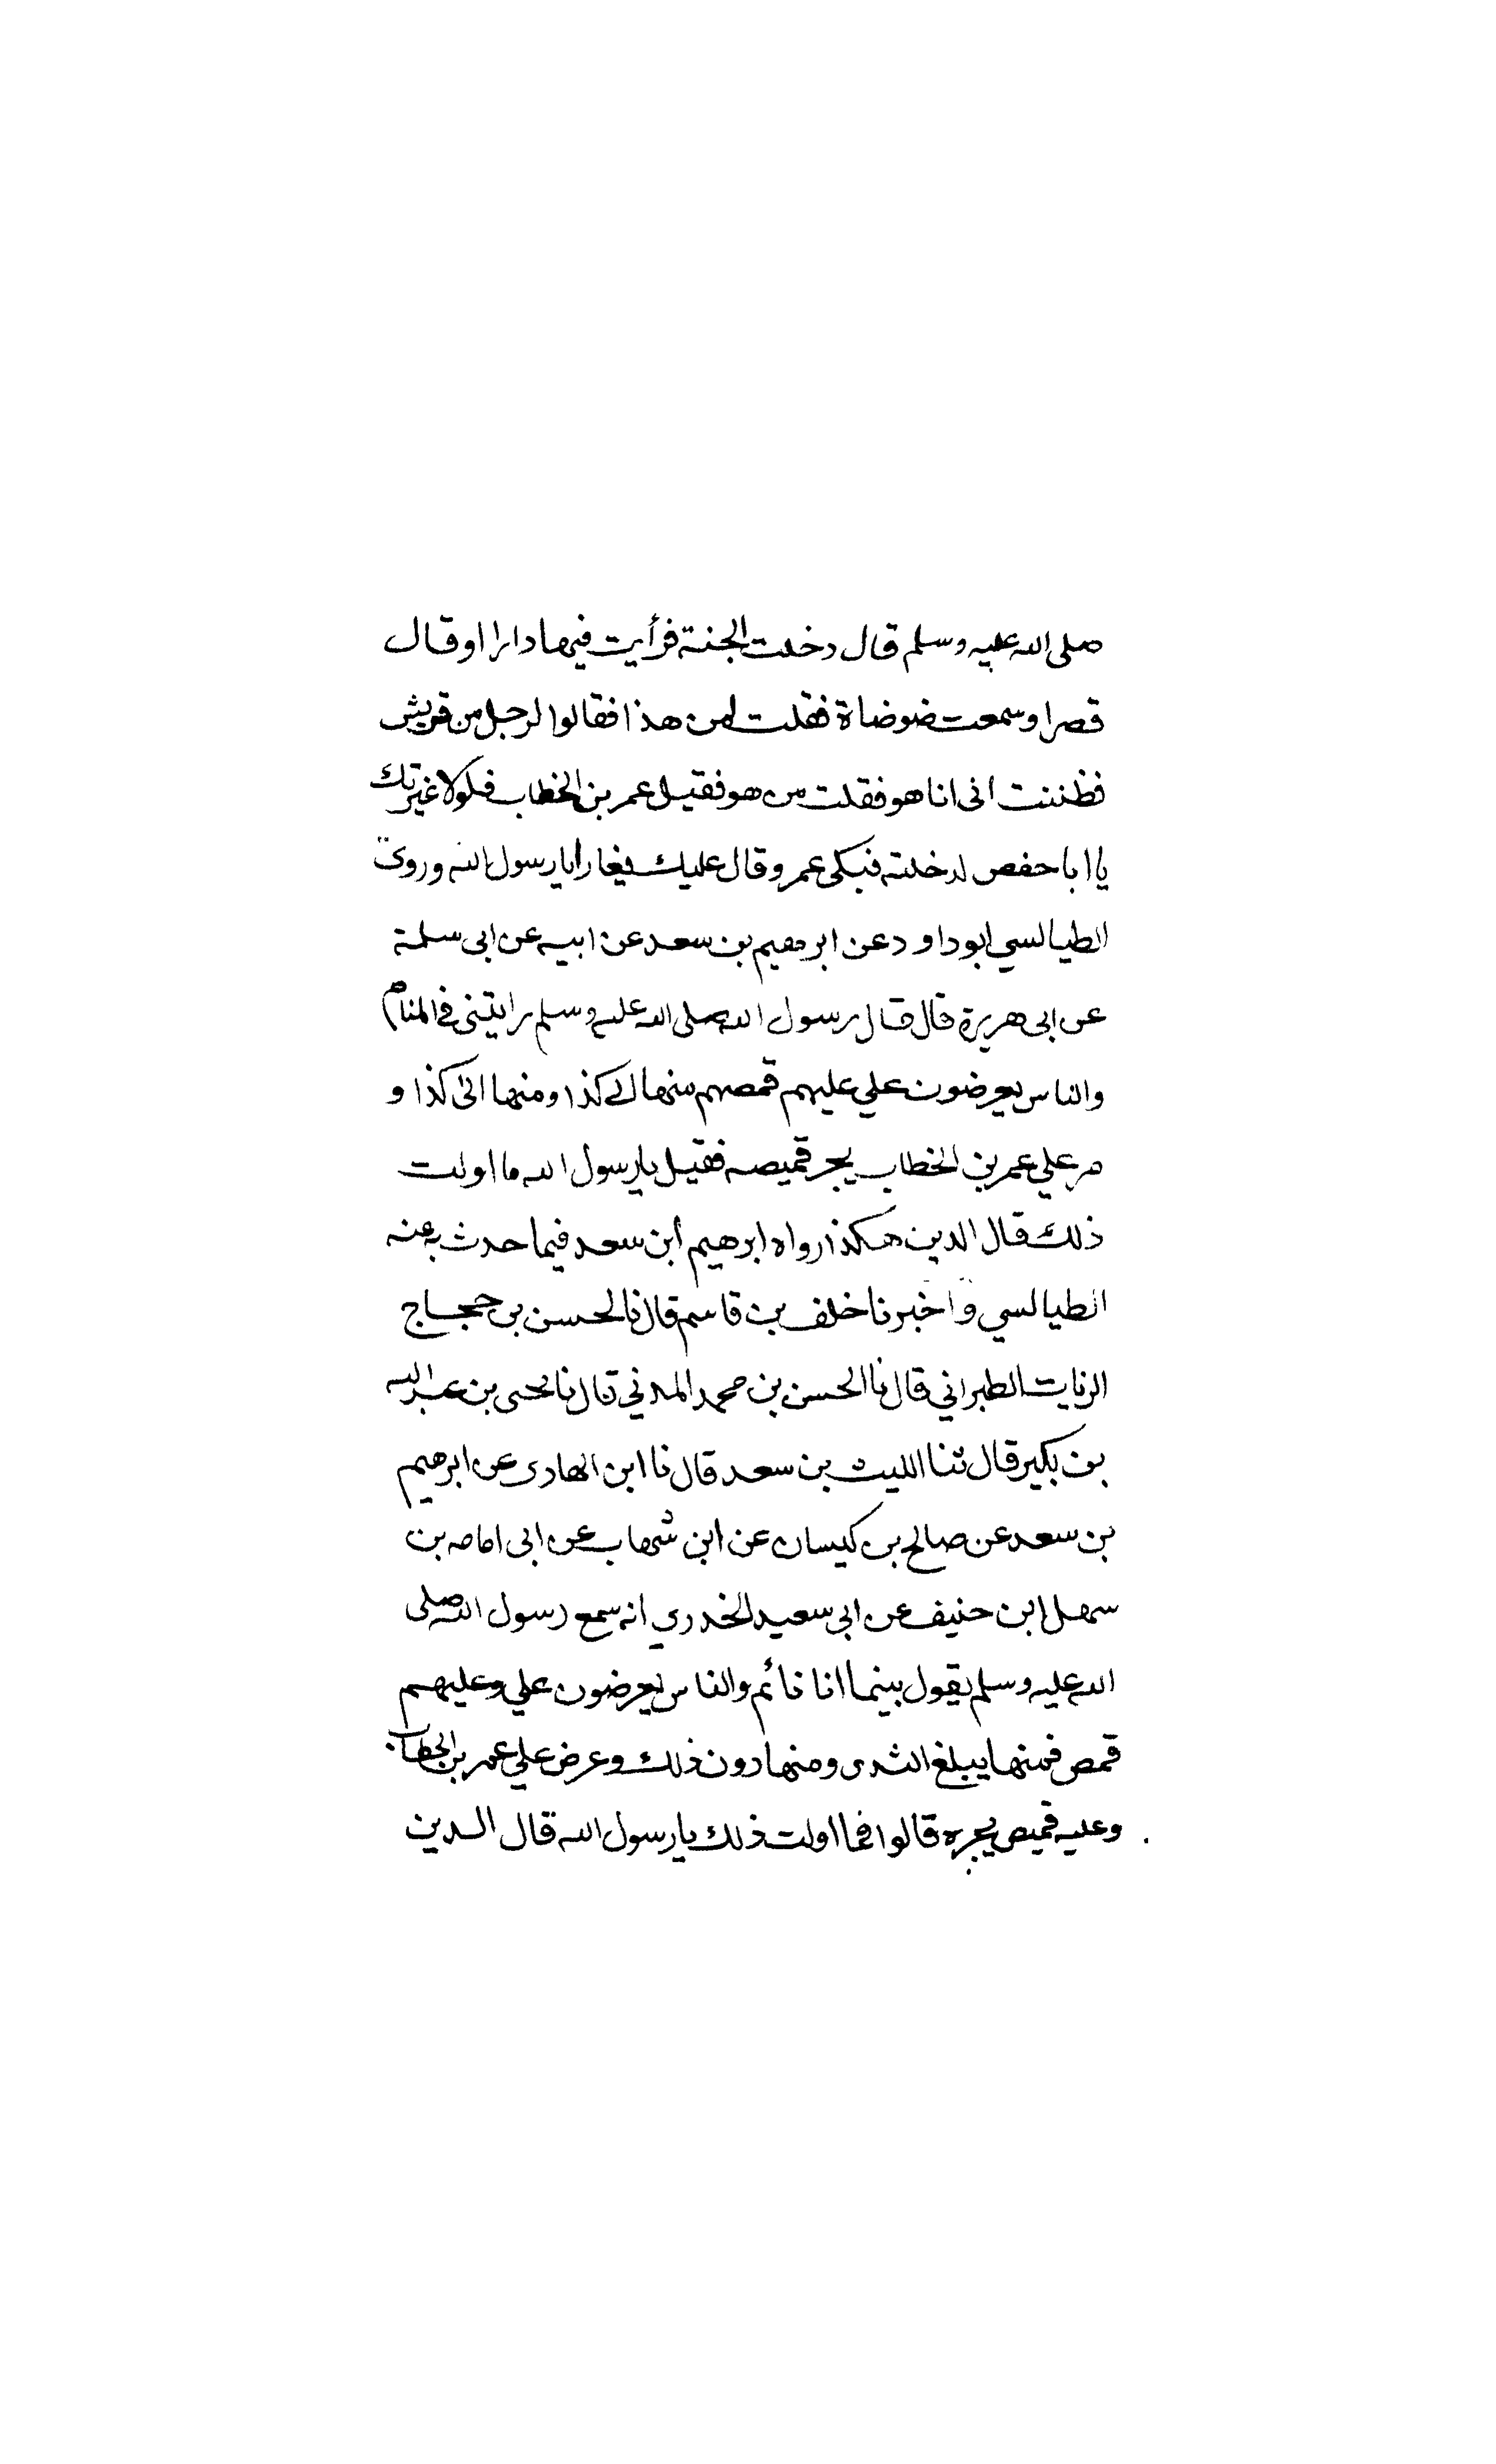 صلى الله عليه وسلم قال دخلت الجنة فرأيت فيها دارا او قال
قصرا وسمعت ضوضاة فقلت لمن هذا فقالوا لرجل من قريش
فظننت انى انا هو فقلت من هو فقيل عمر بن الخطاب فلولا غيرتك
يا ابا حفص لدخلته فبكى عمر وقال عليك يغار يا رسول الله وروى
الطيالسي ابو داود عن ابرهيم بن سعد عن ابيه عن ابى سلمة
عن ابى هريرة قال قال رسول الله صلى الله عليه وسلم رايتنى فى المنام
والناس يعرضون علي عليهم قمصهم منها الى كذا ومنها الى كذا و
مر علي عمر بن الخطاب يجر قميصه فقيل يا رسول الله ما اولت
ذلك قال الدين هكذا رواه ابرهيم ابن سعد فيما حدث به عنه
الطيالسي واخبرنا خلف بن قاسم قال نا الحسن بن حجاج
الزيات الطبراني قال نا الحسن بن محمد المدني قال نا يحيى بن عبد الله
بن بكير قال ثنا الليث بن سعد قال نا ابن الهادى عن ابرهيم
بن سعد عن صالح بن كيسان عن ابن شهاب عن ابى امامه بن
سهل ابن حنيف عن ابى سعيد الخدري انه سمع رسول الله صلى
الله عليه وسلم يقول بينما انا نائم والناس يعرضون علي وعليهم
قمص فمنها يبلغ الثدى ومنها دون ذلك وعرض علي عمر بن الخطاب
وعليه قميص يجره قالوا فما اولت ذلك يا رسول الله قال الدين